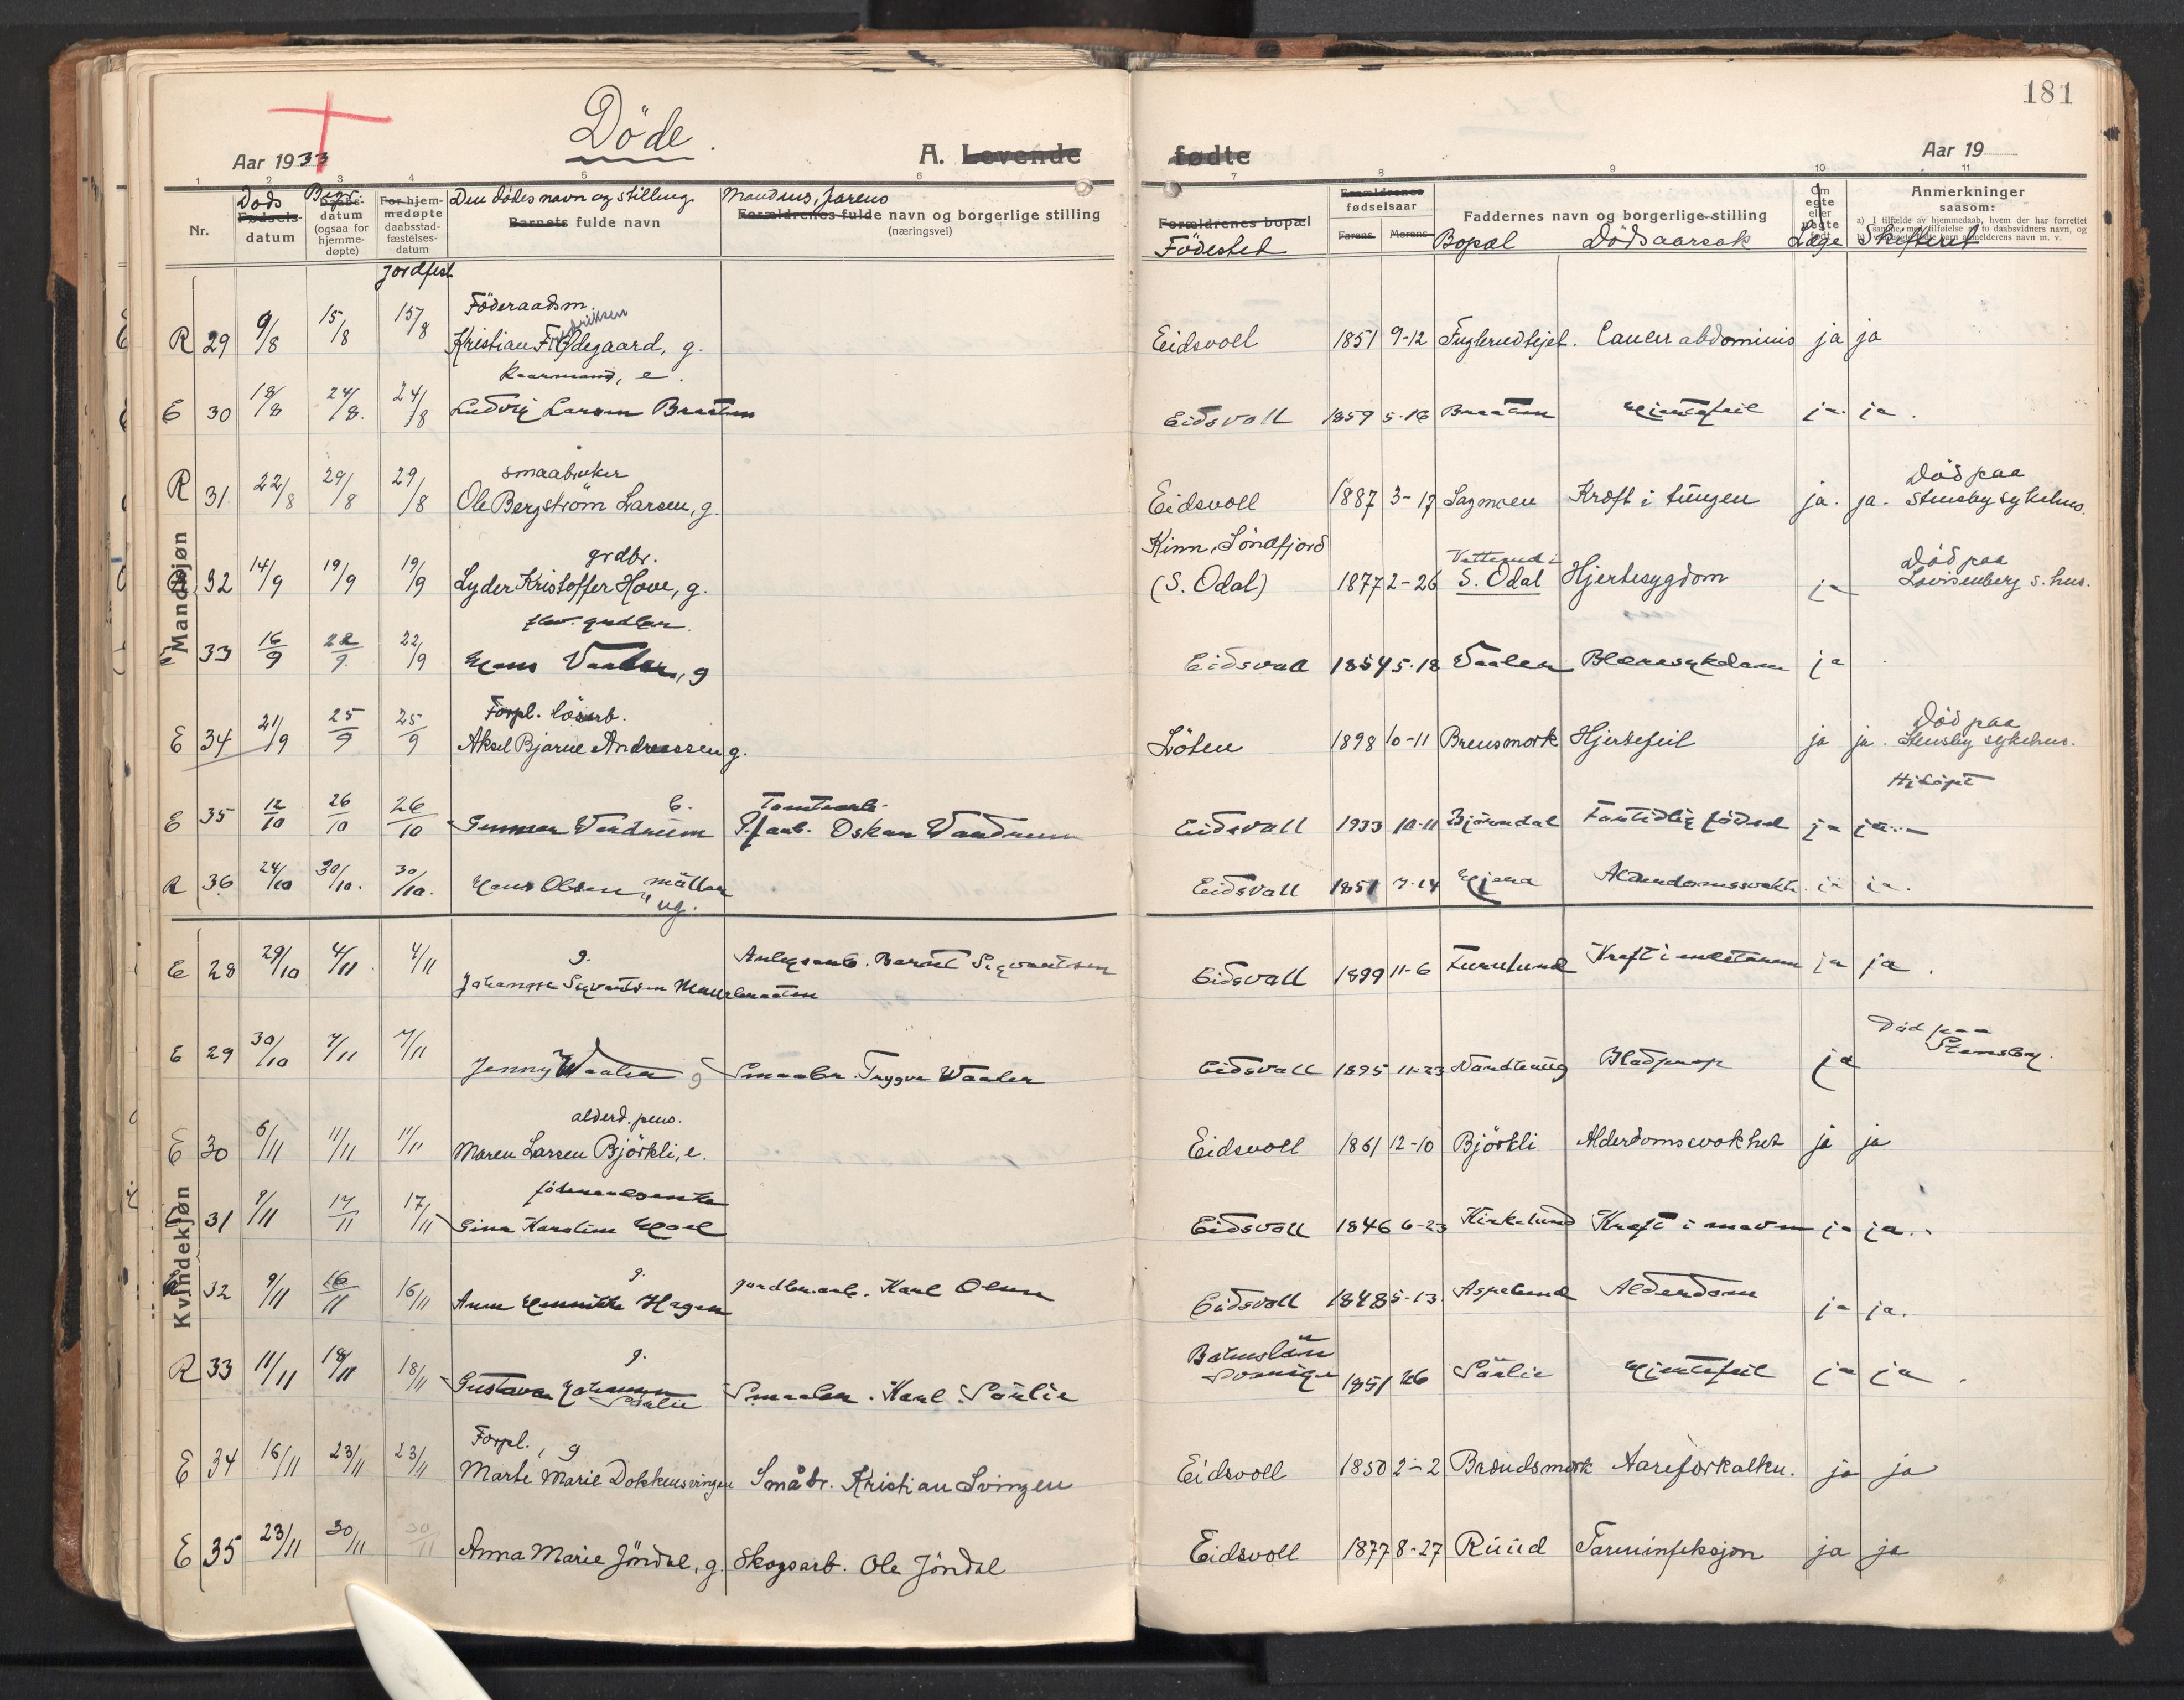 181
Döde.
Aar 1933
A. Levende fødte
Aar 19
1 2 3 4 5 6 7 8 9 10 11
Nr.
Döds
Fødsels-
datum
Begr.
Daabs-
datum
(ogsaa for
hjemme-
døpte)
For hjem-
medøpte
daabsstad-
fæstelses-
datum
Jordfest
Den dödes navn og stilling
Barnets fulde navn
Mandens, farens
Forældrenes fulde navn og borgerlige stilling
(næringsvei)
Forældrenes bopæl
Födested
Forældrenes
fødselsaar
Farens Morens
Faddernes navn og borgerlige stilling
Bopæl Dödsaarsak
Om
egte
eller
uegte
født
Læge
Anmerkninger
saasom:
Skifteret
Mandkjøn
Föderaadsm.
R 29 9/8 15/8 15/8 Kristian Fredriksen Ödegaard, g. Eidsvoll 1851 9-12 Cancer abdominis ja ja
E 30 18/8 24/8 24/8 Ludvig Larsen Braaten Eidsvoll 1859 5-16 Braaten Hjertefeil ja ja
Kaarmand, e.
smaabruker
R 31 22/8 29/8 29/8 Ole Bergström Larsen, g. Eidsvoll 1887 3-17 Sagmoen Kræft i tungen ja. ja. Död paa Stensby sykehus.
grdbr.
32 14/9 19/9 19/9 Lyder Kristoffer Hove, g. Kinn, Söndfjord (S. Odal) 1877 2-26 S. Odal Hjertesygdom ja Död paa Lovisenberg s. hus.
33 16/9 22/9 22/9 Hans Vaaler, g Eidsvoll 1854 5-18 Vaaler Blæresykdom ja
Forpl. lösarb.
E 34 21/9 25/9 25/9 Aksel Bjarne Andreassen g. Löten 1898 10-11 Brensmork Hjertefeil ja ja. Död paa Stensby sykehus.
E 35 12/10 26/10 26/10 Gunnar Vandrum Tomtearb. Oskar Vandrum Eidsvoll 1933 10-11 Björndal Fortidlig födsel ja ja Hjdöpt
R 36 24/10 30/10. 30/10. Hans Olsen, ug. Eidsvoll 1851 7-14 Alderdomssvakh. ja ja.
Kvindekjøn
E 28 29/10 4/11 4/11 g. Anlegsarb. Berntl Sigvartsen Eidsvoll 1899 11-6 Furulund Kræft i ja ja.
E 29 30/10 7/11 7/11 Jenny Waaler g Smaabr. Trygve Waaler Eidsvoll 1895 11-23 Blodprop ja Död paa Stensby.
alderd. pens.
E 30 6/11 11/11 11/11 Maren Larsen Björkli, e. Eidsvoll 1861 12-10 Björkli Alderdomssvakhet ja ja
31 9/11 17/11 17/11 Gina Karoline Eidsvoll 1846 6-23 Kirkelund Kræft i maven ja ja.
32 9/11 16/11 16/11 Anne Hagen g. Jordbr.arb. Karl Olsen Eidsvoll 1848 5-13 Aspelund Alderdom ja ja.
R 33 11/11 18/11 18/11 Gustava Johanne Sörlie g. Smaabr. Karl Sörlie Sverige 1851 Sörlie Hjertefeil ja ja.
Forpl., g
E 34 16/11 23/11 23/11 Marte Marie Dokkensvingen Småbr. Kristian Svingen Eidsvoll 1850 2-2 Brændsmork Aareforkalkn. ja ja
E 35 23/11 30/11 30/11 Anna Marie Jöndal, g. Skogsarb. Ole Jöndal Eidsvoll 1877 8-27 Ruud Tarminfeksjon ja ja